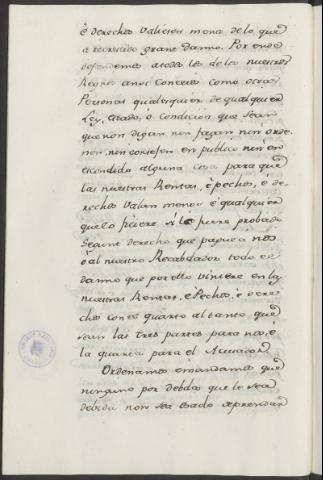 è derechos valiesen menos de lo que
a recrecido grant danno. Por ende
defendemos a todos los de los nuestros
Regnos ansi Concejos como otras
Personas qualesquier de qualquier
Ley, estado, o condicion que sean
que non digan nin fagan nin orde
nen, nin consejen en publico nin en
escondido alguna cosa para que
las nuestras Rentas, è pechos, è de
rechos valan menos è qualquier
que lo ficiere si le fuere probado
segunt derecho que pague à nos
ò al nuestro Recabdador todo el
danno que por ello viniere en las
nuestras Rentas, è Pechos, è dere
chos con el quarto al tanto, que
sean las tres partes para nos, è
la quarta para el Acusador.
Ordenamos è mandamos que
ninguno por debdas que le sea
debida non sea osado de prendar